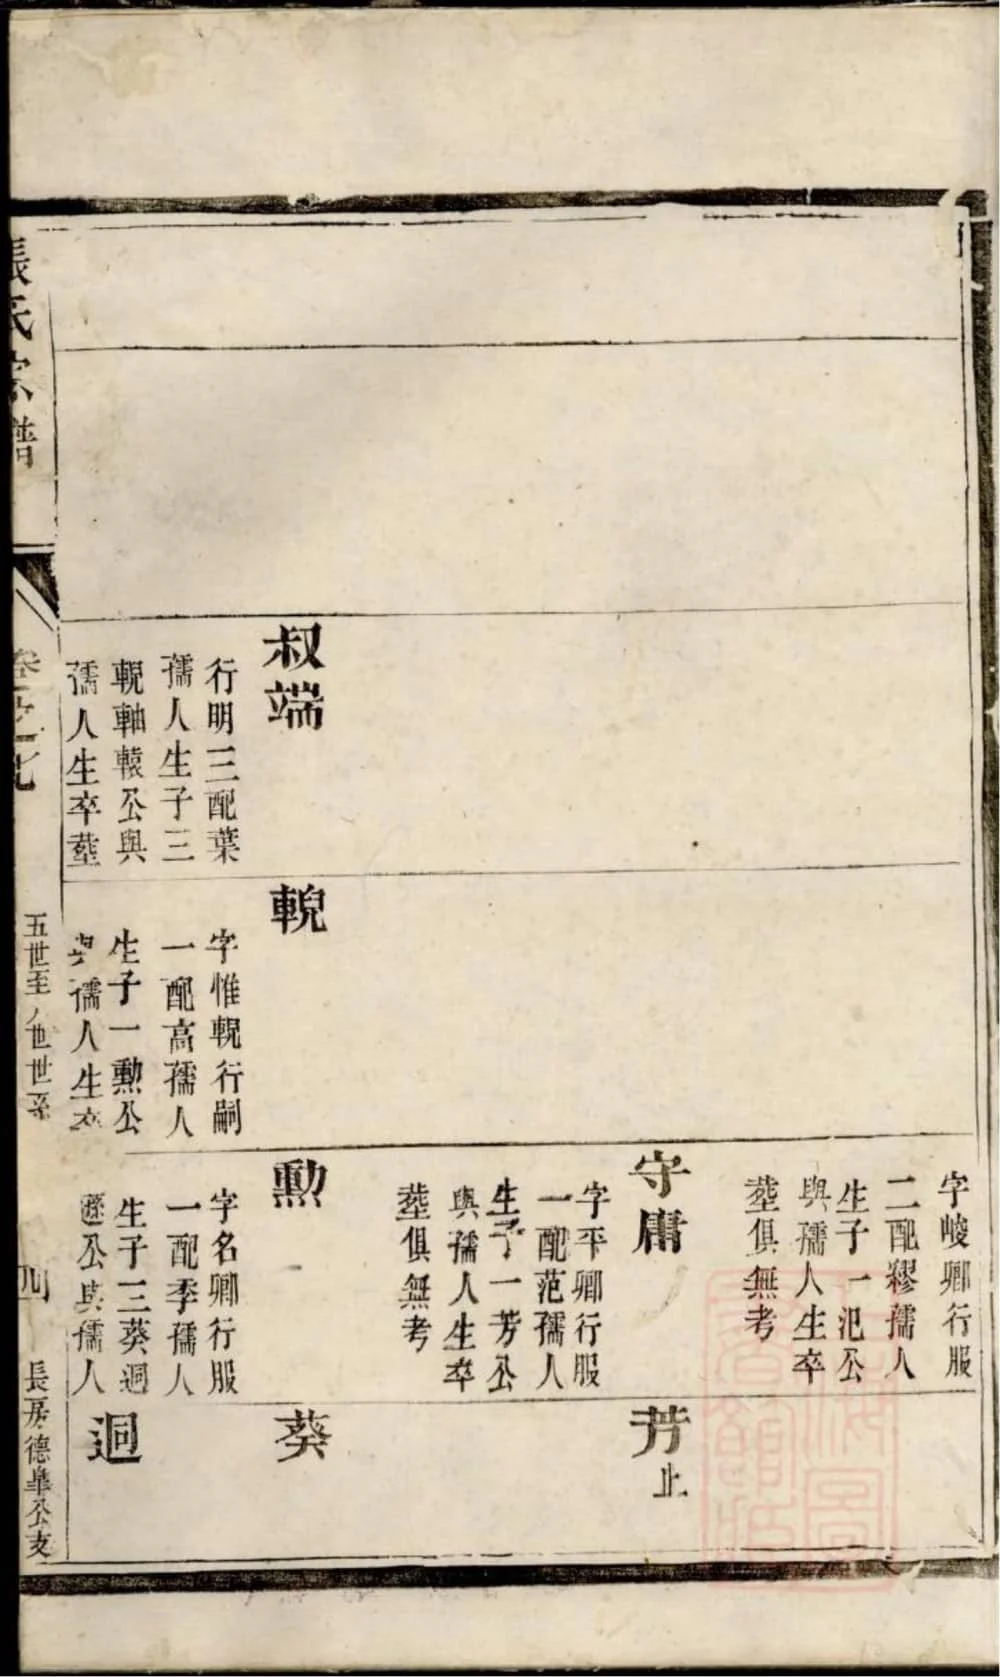 叔端
行明三配葉
孺人生子三
輗軸轅公與
孺人生卒塟
輗
字惟輗行嗣
一配高孺人
生子一勲公
與孺人生卒
字峻卿行服
二配繆孺人
生子一汜公
與孺人生卒
塟俱無考
守庸
字平卿行服
一配范孺人
生子一芳公
與孺人生卒
塟俱無考
勲
字名卿行服
一配季孺人
生子三葵迥
公與孺人
芳止
葵
迥
張氏宗譜
卷之七
五世至八世世系
四
長房德皐公支